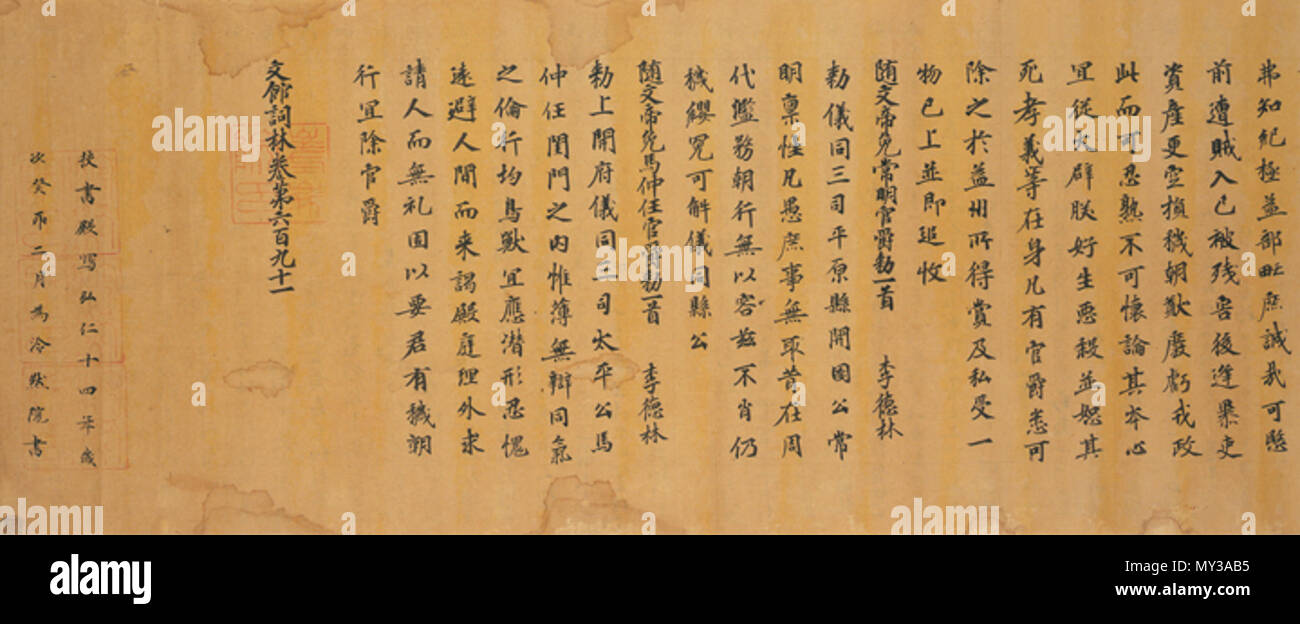 弗知紀極益部甿庶誠哉可愍
前遭賊入已被残害後逢渠吏
資産更空損穢朝猷廢虧我政
此而可忍孰不可懷論其本心
宜從大辟朕好生惡殺並恕其
死孝義等在身凡有官爵悉可
除之於益州所得賞及私受一
物已上並即追收
隨文帝免常明官爵勅一首 李德林
勅儀同三司平原縣開國公常
明稟性凡愚庶事無取昔在周
代濫務朝行無以容兹不肖仍
穢纓冕可解儀同縣公
隨文帝免馬仲任官爵勅一首 李德林
勅上開府儀同三司太平公馬
仲任閨門之内惟薄無辯同氣
之倫行均鳥獸宜應潜形忍愧
遠避人間而来謁殿庭理外求
請人而無礼固以要君有穢朝
行宜除官爵
文館詞林卷第六百九十一
校書殿寫弘仁十四年歳
次癸卯二月為冷然院書
alamy
Image ID: MY3AB5
www.alamy.com